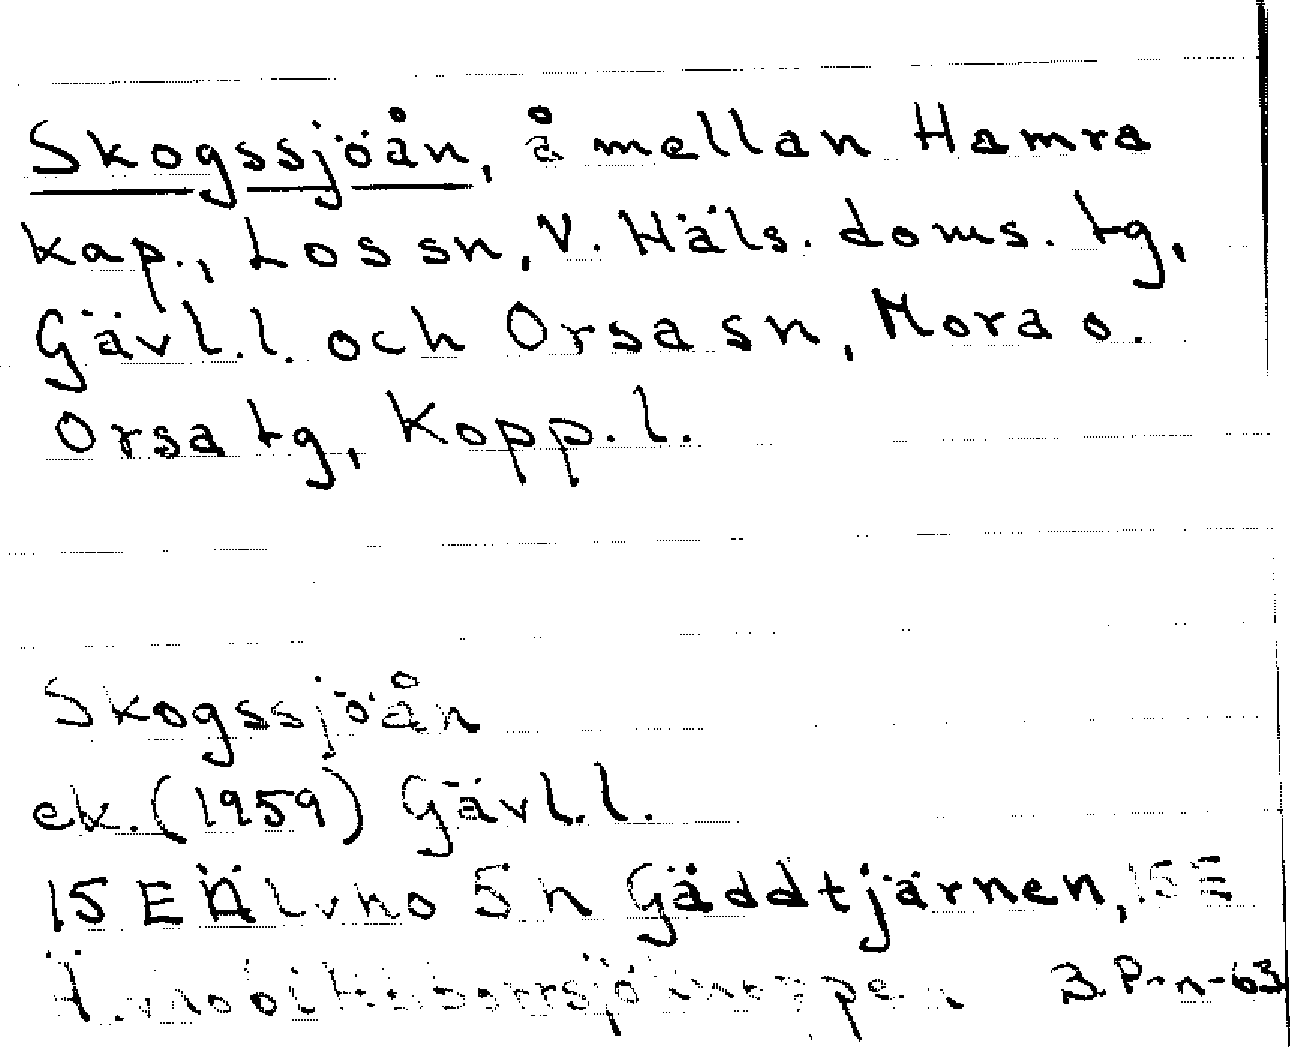 Skogssjöån, å mellan Hamra
kap., Los sn, V. Häls. doms. tg,
Gävl.l. och Orsa sn, Mora o.
Orsa tg, Kopp. l.
Skogssjöån
ek. (1959) Gävl.l.
15 E Älvho 5 h Gäddtjärnen, 15 E